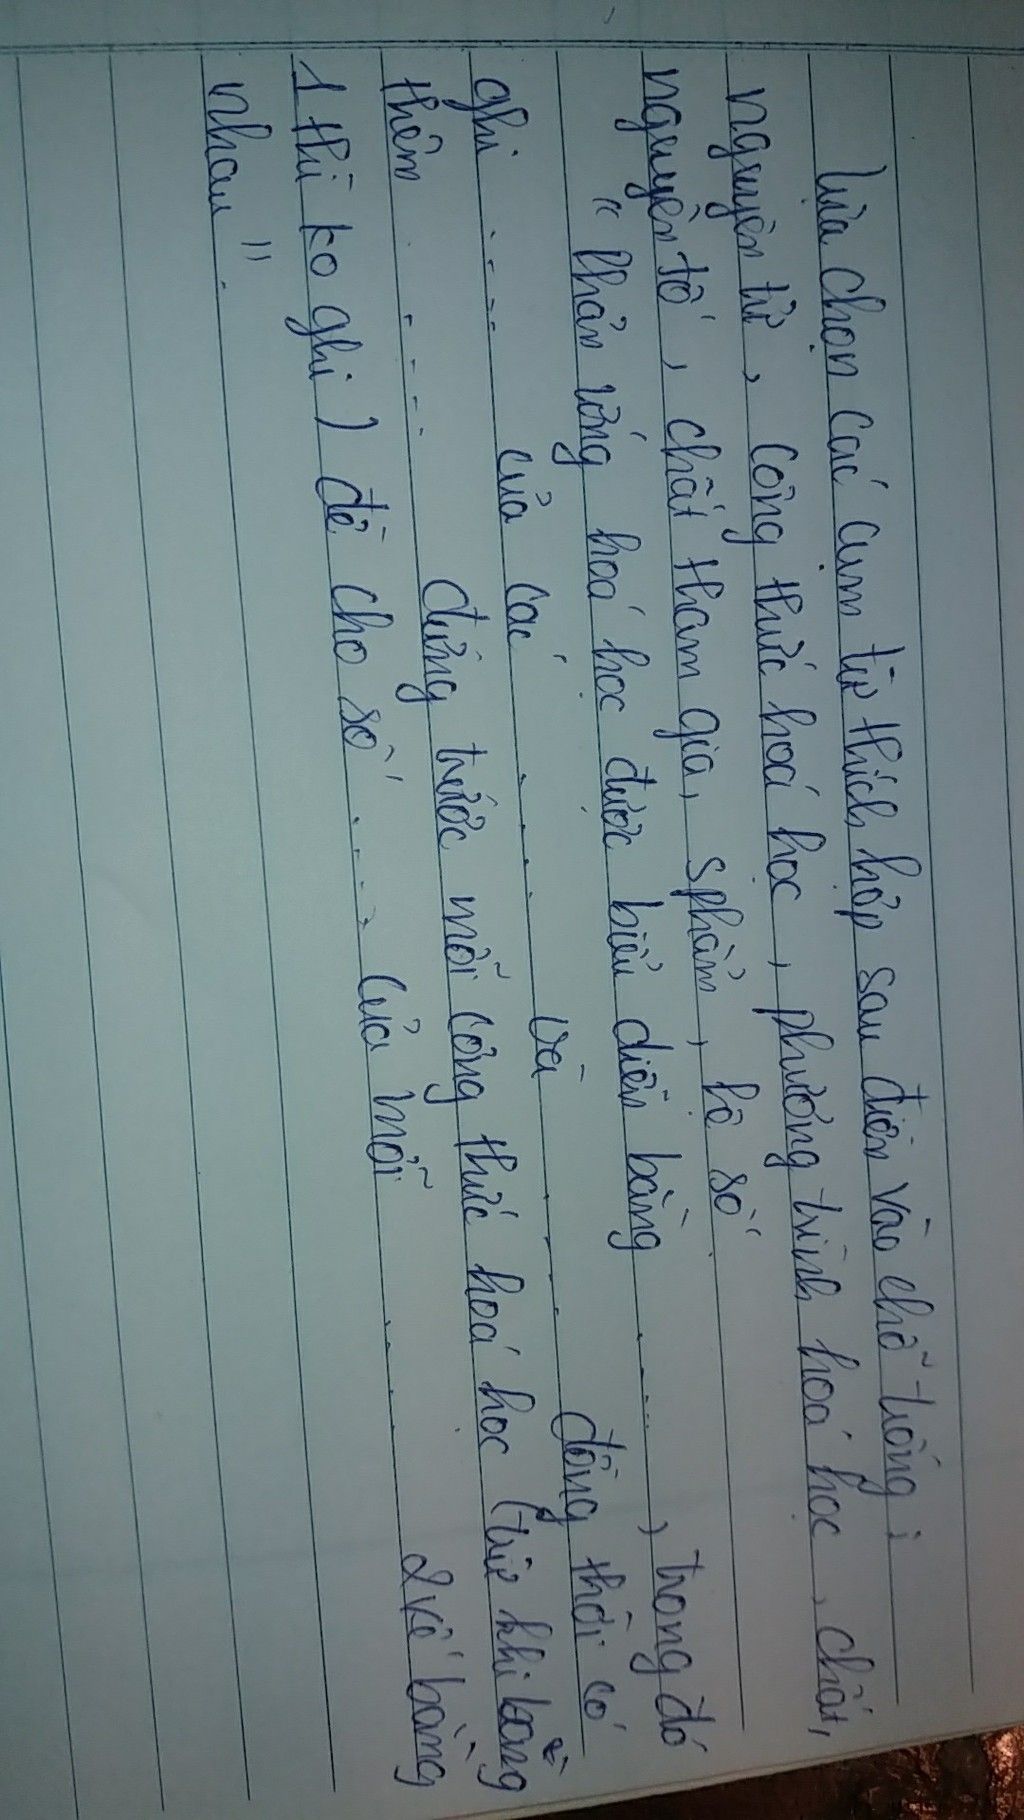 Lựa chọn các cụm từ thích hợp sau điền vào chỗ trống :
nguyên tử, công thức hoá học, phương trình hoá học, chất,
nguyên tố, chất tham gia, sphẩm, hệ số
" Phản ứng hoá học được biểu diễn bằng ........, trong đó
ghi ..... của các ...... và ...... đồng thời có
thêm ...... đứng trước mỗi công thức hoá học (trừ khi bằng
1 thì ko ghi) để cho số ...... của mỗi ...... 2 vế bằng
nhau".